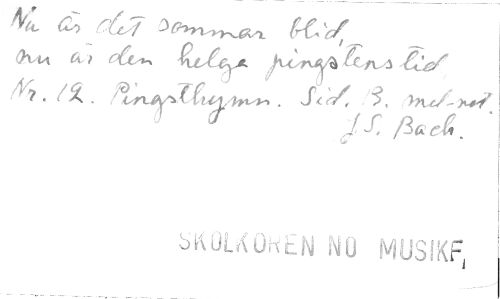 Nu är det sommar blid,
nu är den helga pingstens tid
Nr. 12. Pingsthymn. Sid. B. mel-not.
J.S. Bach.
SKOLKÖREN NO MUSIKF,